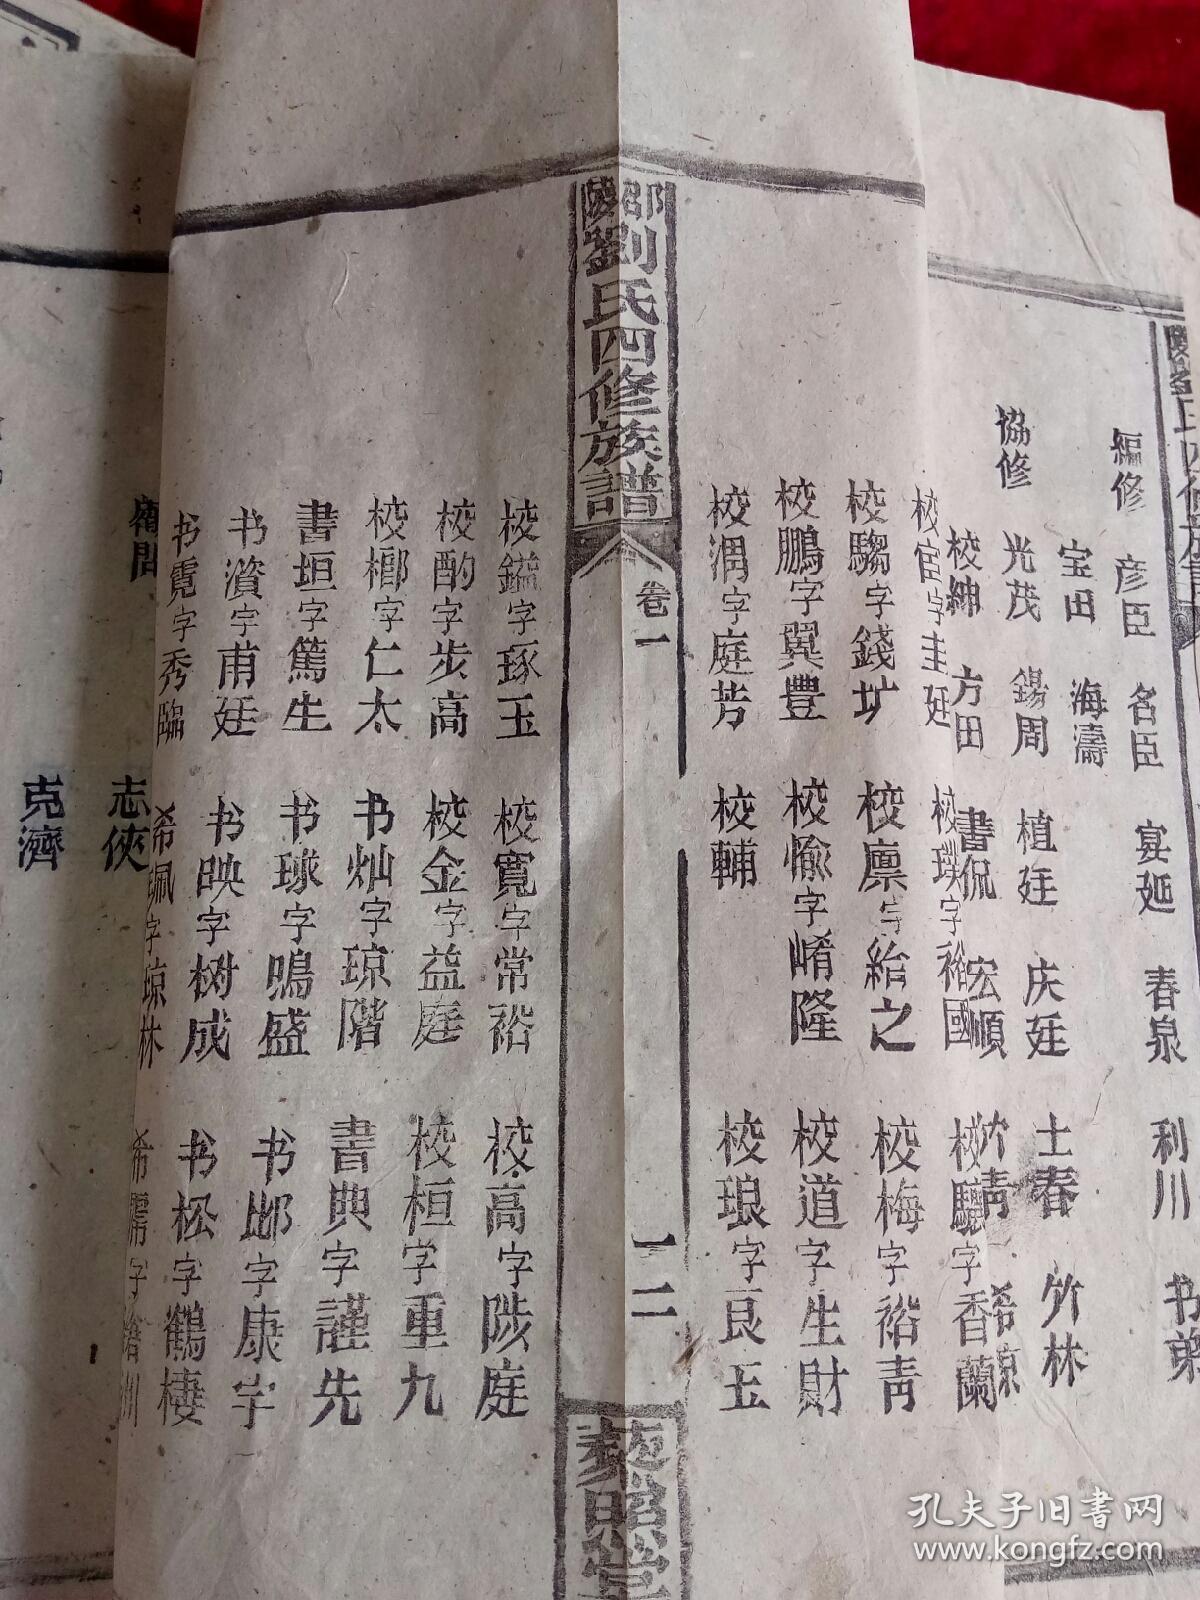 編修 彦臣 名臣 宴延 春泉 利川 书弟
宝田 海濤
協修 光茂 錫周 植廷 庆廷 士春 竹林
校紳 方田 書侃 宏順 竹青
校宦字圭廷 校璞字裕國 校驄字香蘭
校騶字錢圹 校廪字紿之 校梅字裕青
校鵬字翼豊 校愉字崤隆 校道字生財
校润字庭芳 校輔 校琅字良玉
邵陵劉氏四修族譜 卷一 一二 藜照堂
校鎰字琢玉 校寬字常裕 校高字陟庭
校酌字步高 校金字益庭 校桓字重九
校櫛字仁太 书灿字琼階 書典字謹先
書垣字篤生 书球字鳴盛 书邺字康宇
书濱字甫廷 书映字树成 书松字鶴棲
书霓字秀臨 希珮字琼林
志俠
克濟
孔夫子旧書网
www.kongfz.com